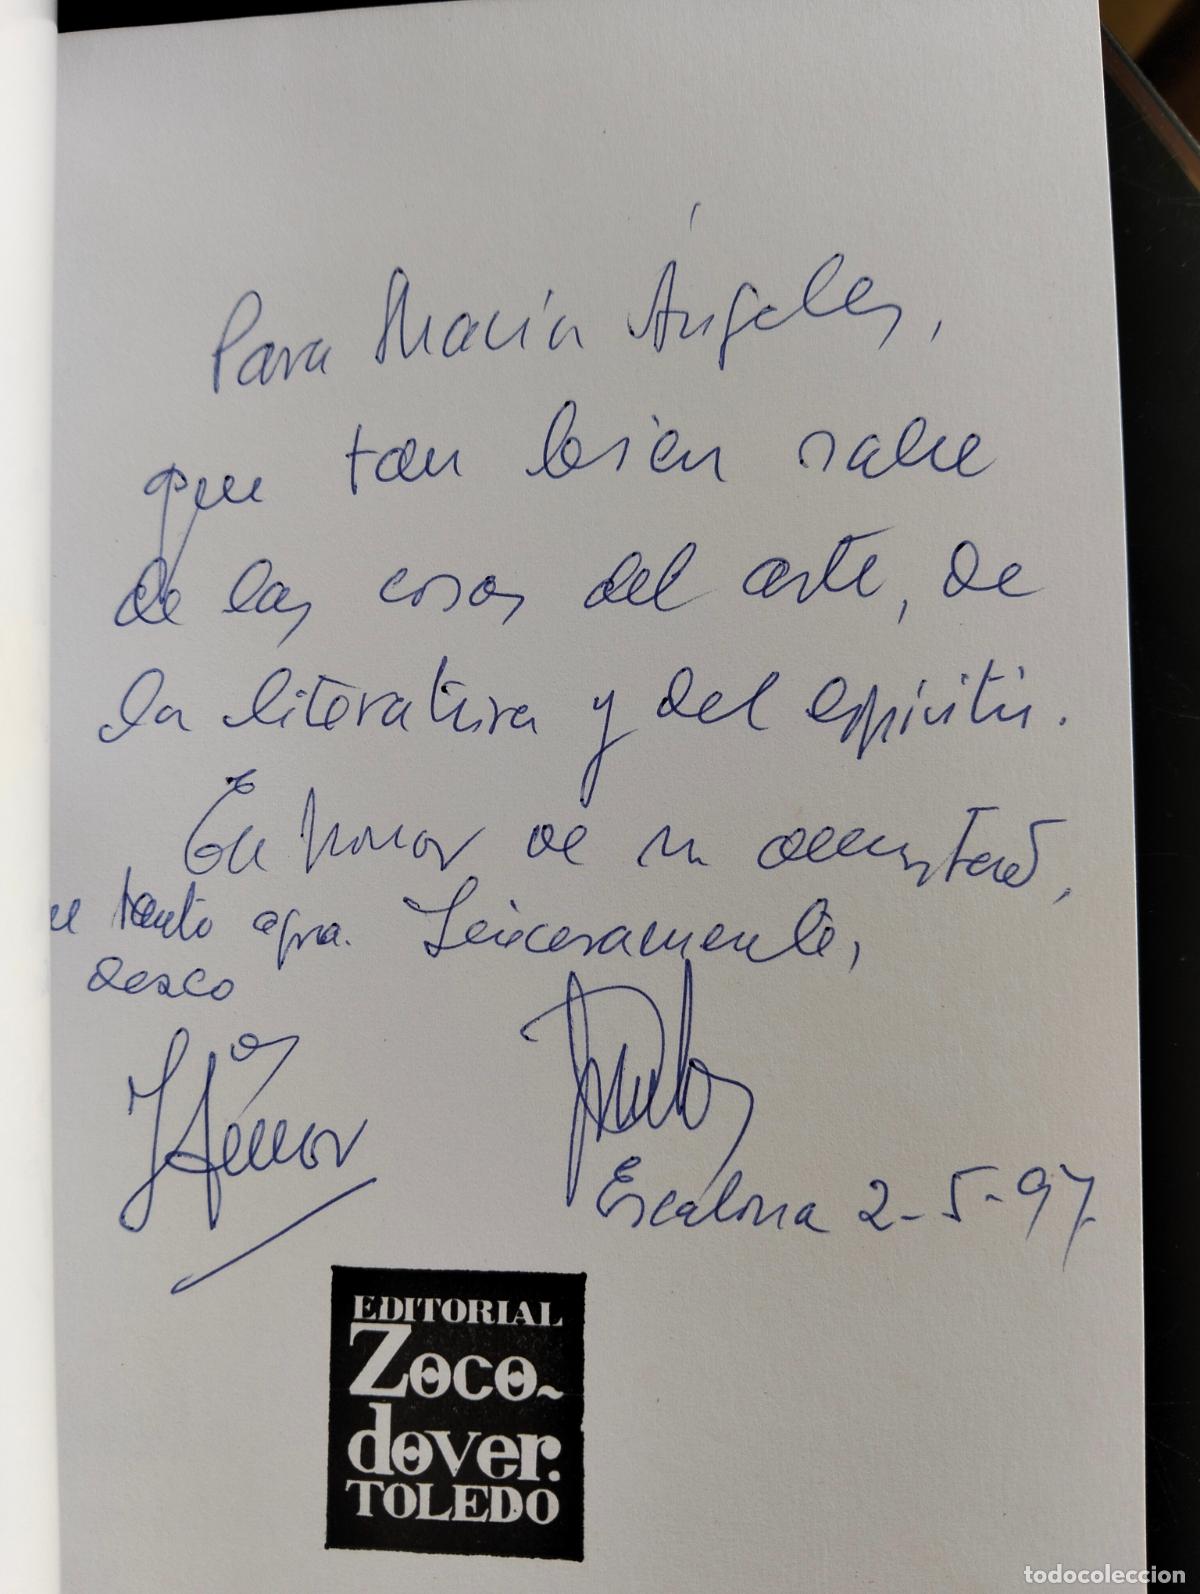 Para María Ángeles,
que tan bien sabe
de las cosas del arte, de
la literatura y del espíritu.
En honor de su amistad,
tanto Sinceramente,
Escalona 2-5-97
EDITORIAL
Zoco-
dover.
TOLEDO
todocoleccion